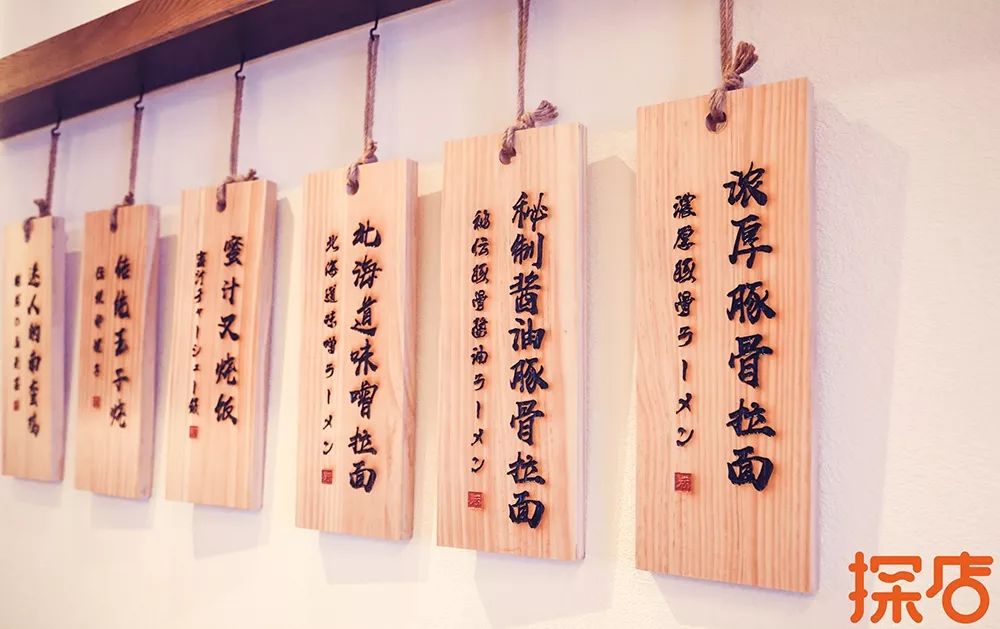 浓厚豚骨拉面
濃厚豚骨ラーメン
秘制酱油豚骨拉面
秘伝豚骨醤油ラーメン
北海道味噌拉面
北海道味噌ラーメン
蜜汁叉烧饭
蜜汁チャーシュー飯
传统玉子烧
伝統卵焼き
迷人的
探店